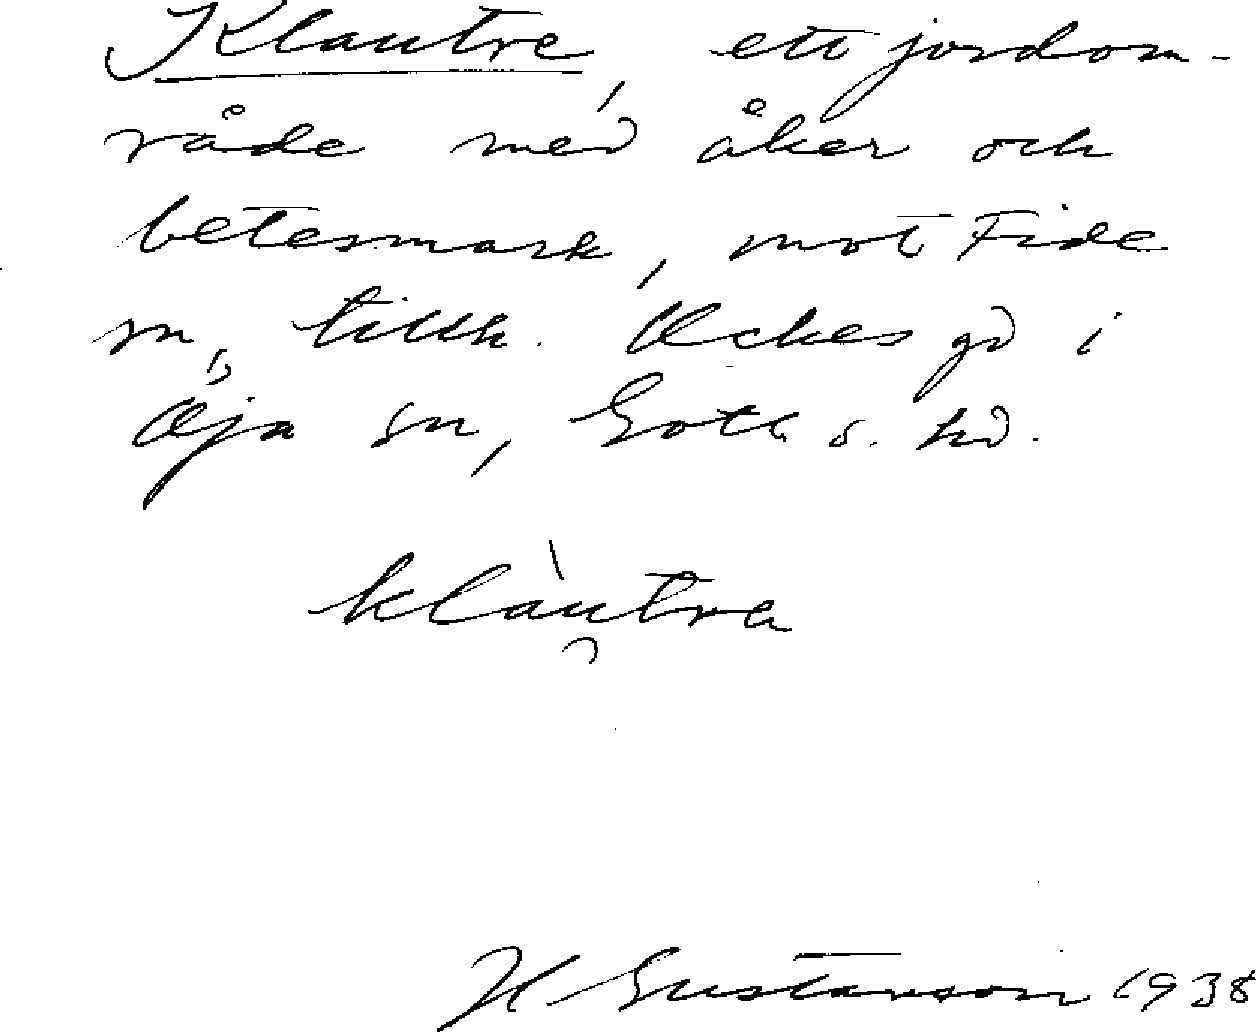 Klautre, ett jordom-
råde med åker och
betesmark, mot Fide
sn, tillh. Ockes gd i
Öja sn, Gotl. s. hd.
klàutra
H Gustavson 1938